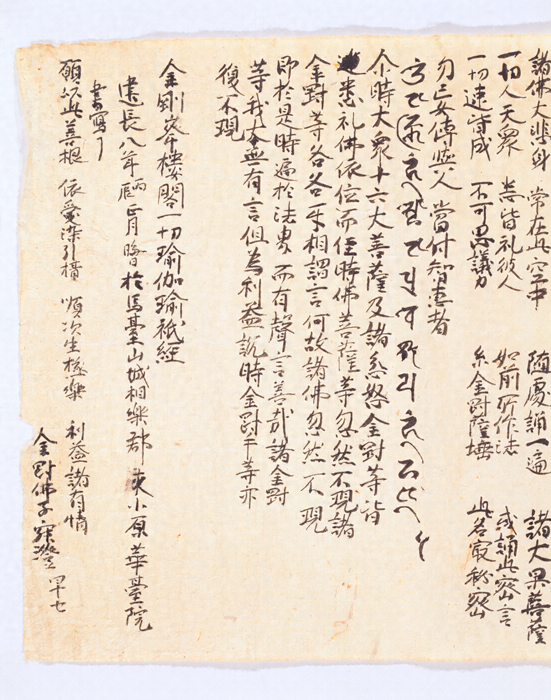 諸佛大悲身 常在此空中 随處誦一遍 諸大果菩薩
一切人天衆 悉皆礼彼人 如前所作法 或誦此密言
一切速皆成 不可思議力 金剛薩埵 此名最秘密
勿妄傳與人 當付智惠者
尒時大衆十六大菩薩及諸忿怒金剛等皆
悉礼佛依位而住時佛菩薩等忽然不現諸
金剛等各各互相謂言何故諸佛忽然不現
即於是時遍於法界而有聲言善哉諸金剛
等我本無有言但為利益說時金剛手等亦
復不現
金剛峯樓閣一切瑜伽瑜祇經
建長八年丙辰正月晦日於馬臺山城相樂郡 小原華臺院
書寫了
願以此善根 依愛染引攝 順次生極樂 利益諸有情
金剛佛子寂澄 四十七